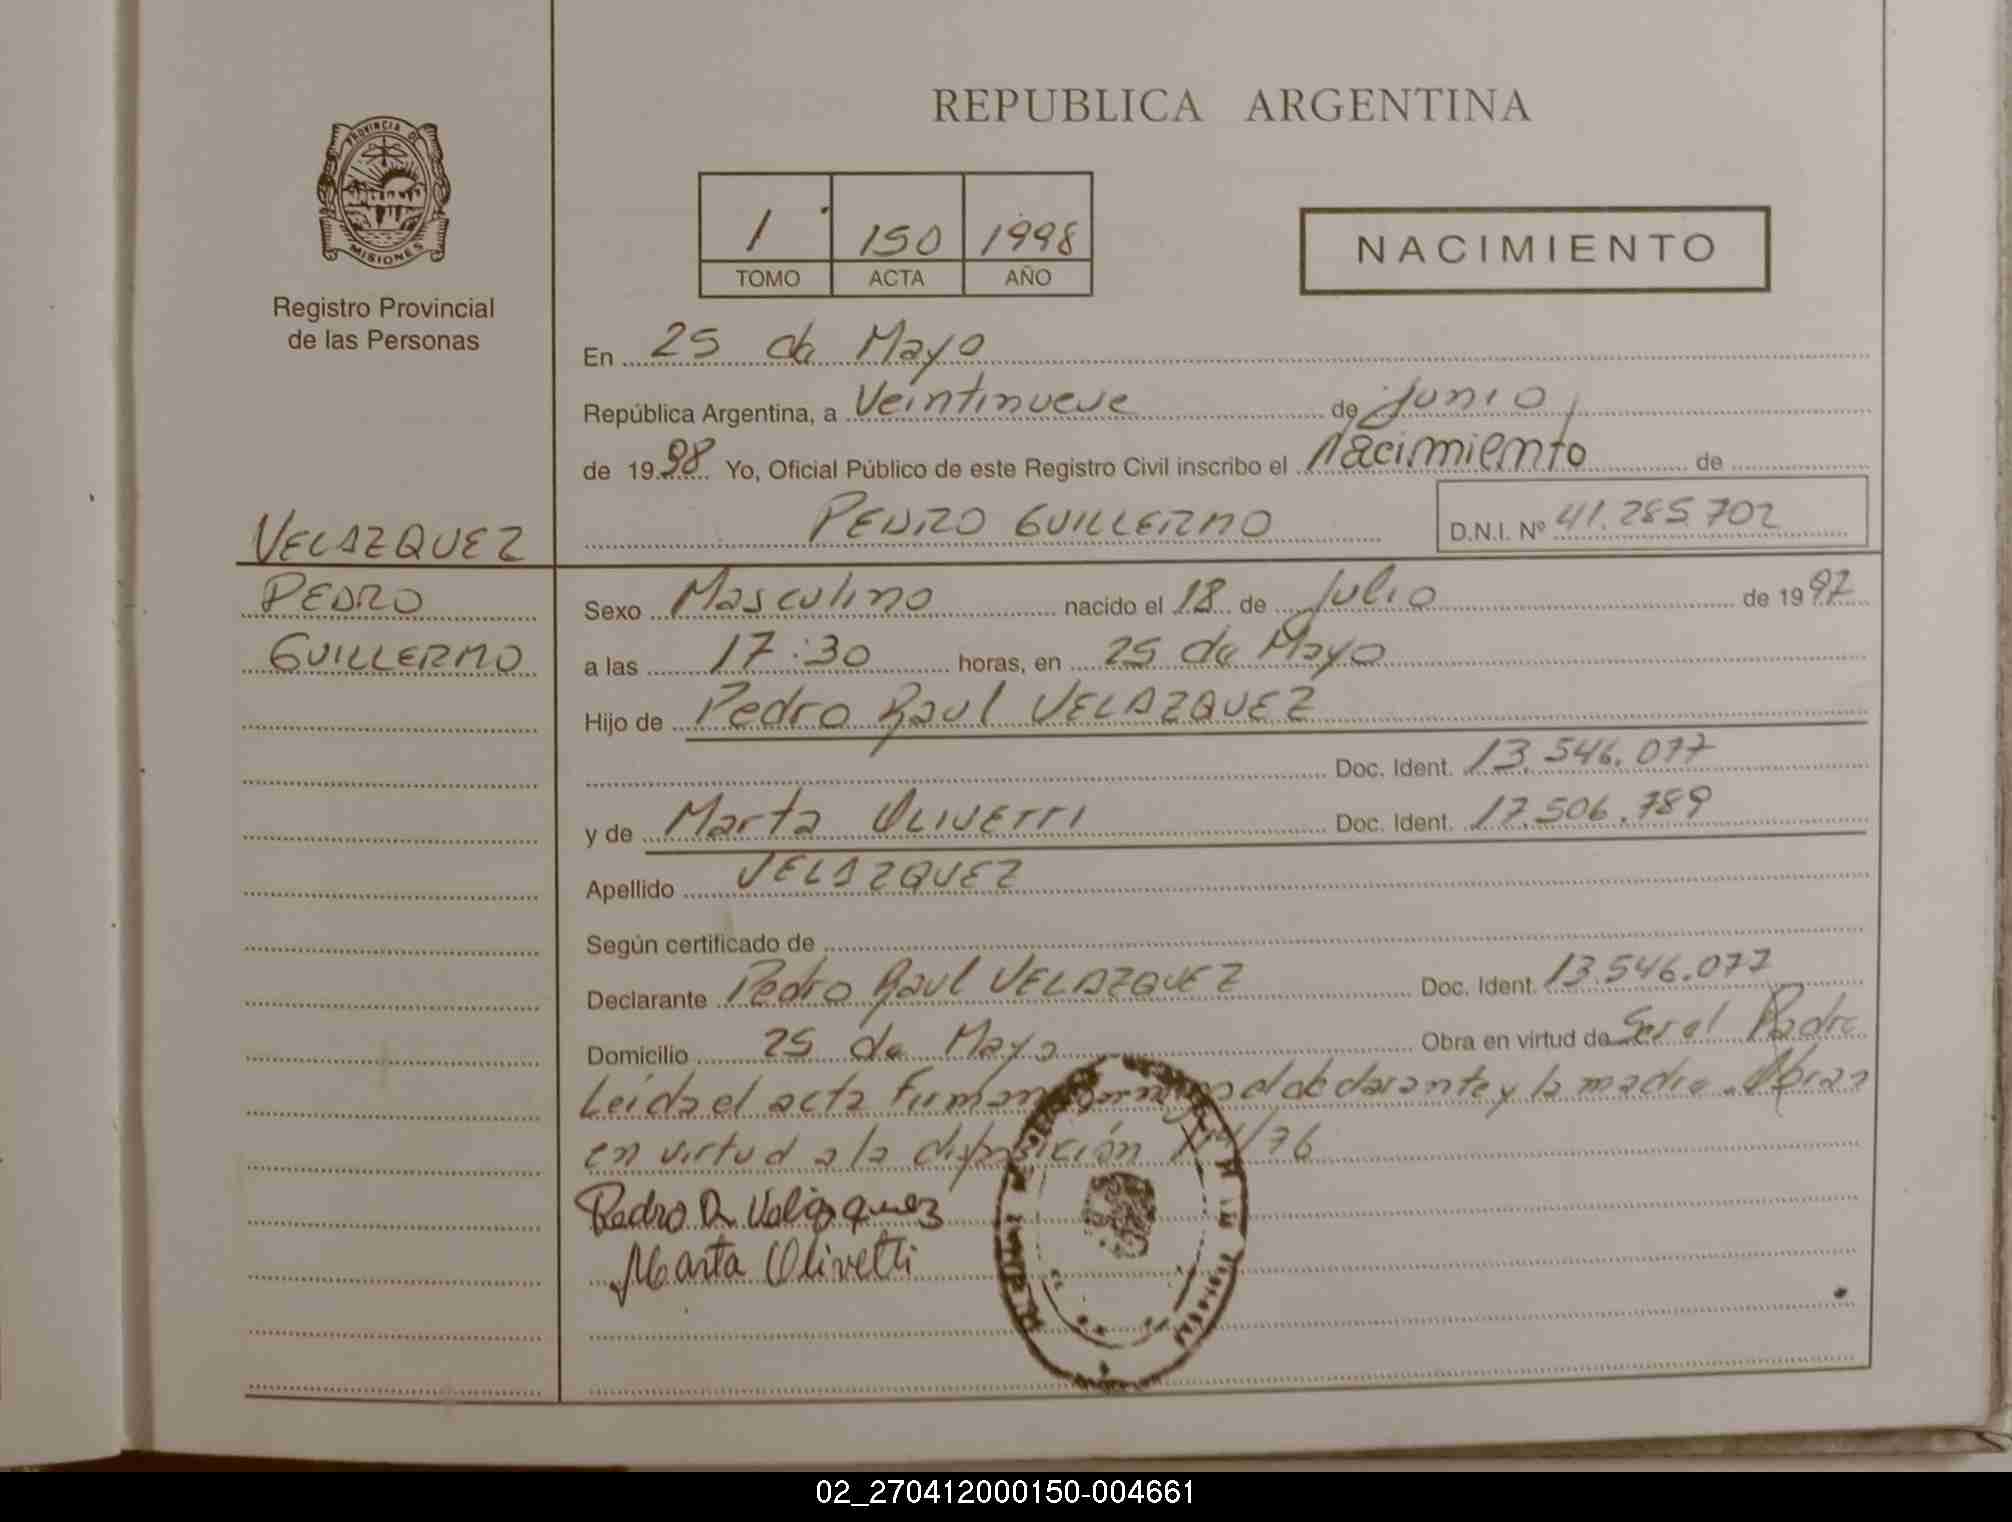 REPUBLICA ARGENTINA
PROVINCIA DE
MISIONES
Registro Provincial
de las Personas
1 150 1998
TOMO ACTA AÑO
NACIMIENTO
En 25 de Mayo
República Argentina, a Veintinueve de Junio
de 1998 Yo, Oficial Público de este Registro Civil inscribo el Nacimiento de
PEDRO GUILLERMO D.N.I. Nº 41.285.702
VELAZQUEZ
PEDRO
GUILLERMO
Sexo Masculino nacido el 18 de Julio de 1997
a las 17:30 horas, en 25 de Mayo
Hijo de Pedro Raul VELAZQUEZ
Doc. Ident. 13.546.077
y de Marta OLIVETTI Doc. Ident. 17.506.789
Apellido VELAZQUEZ
Según certificado de
Declarante Pedro Raul VELAZQUEZ Doc. Ident. 13.546.077
Domicilio 25 de Mayo Obra en virtud de Ser el Padre
Leida el acta Firman conmigo el declarante y la madre. Obran
en virtud a la disposición /76
Pedro R Velazquez
Marta Olivetti
02_270412000150-004661